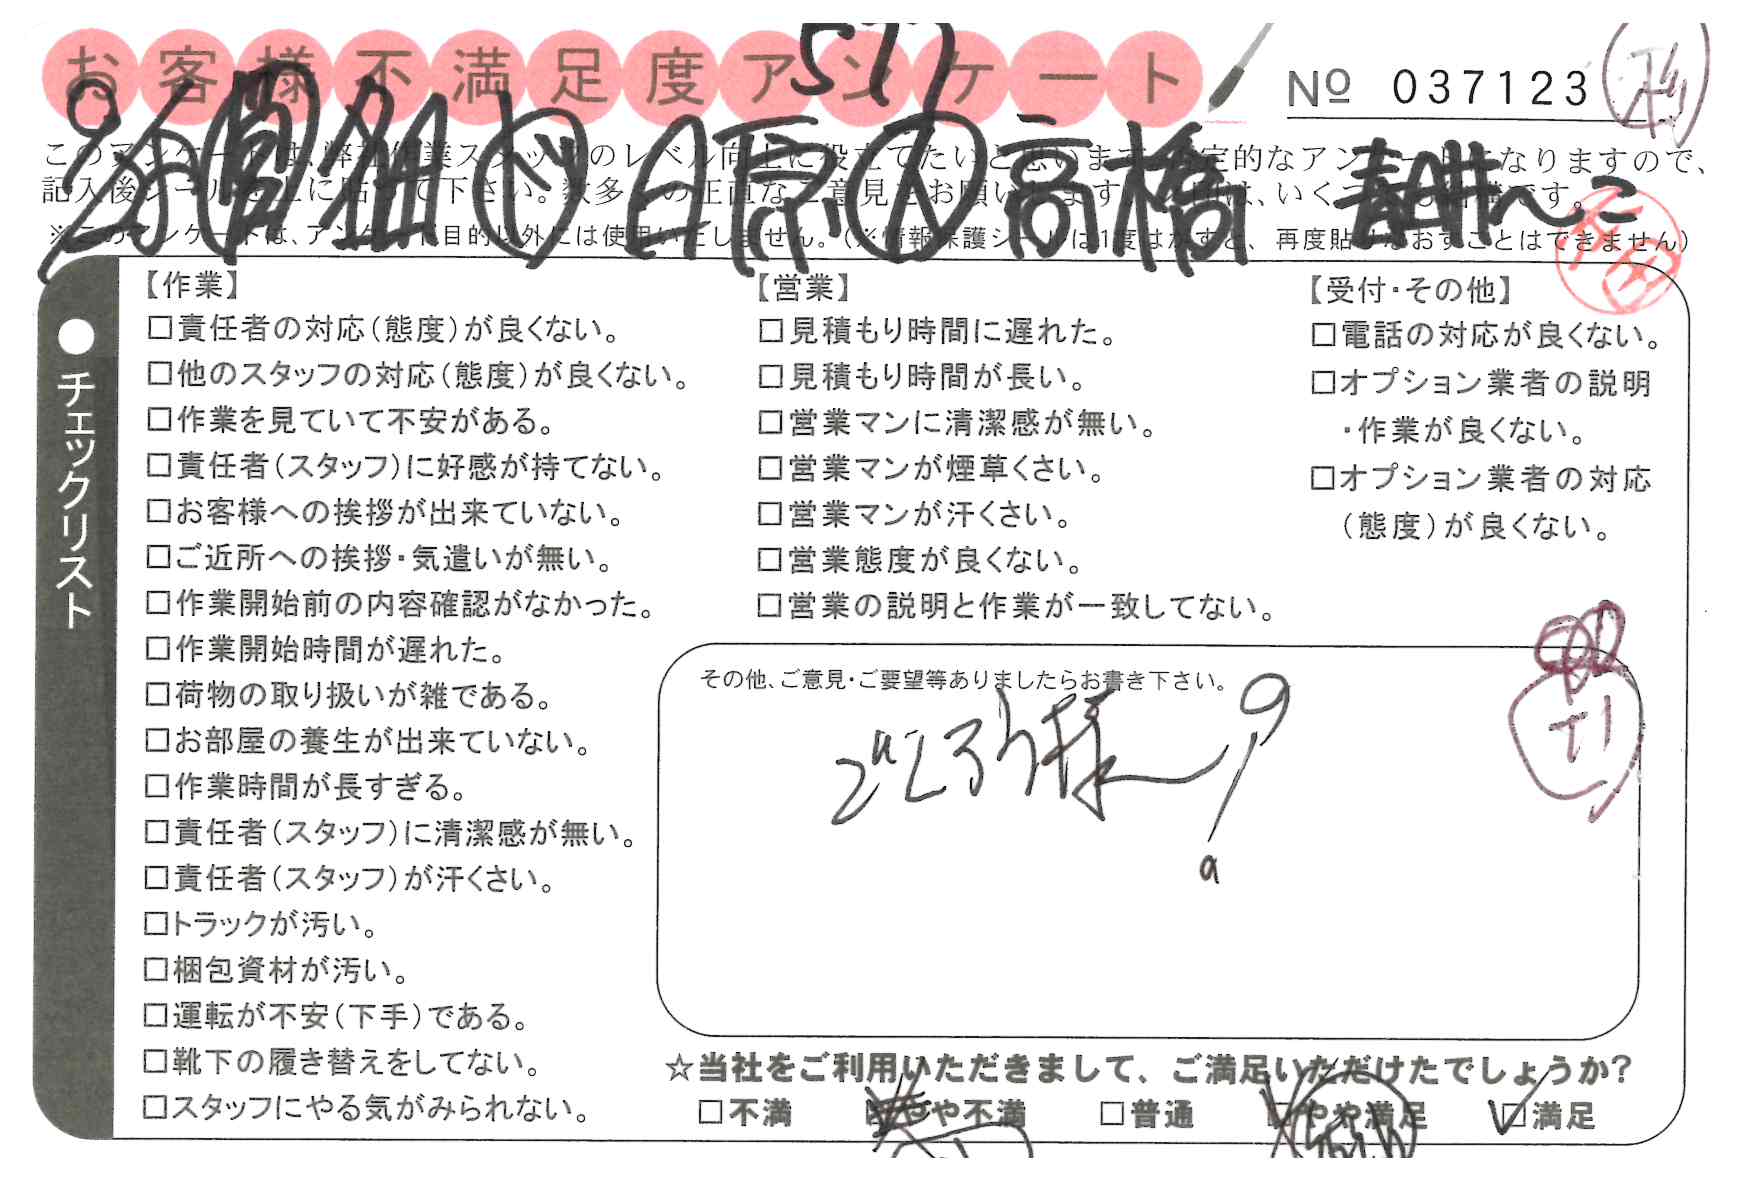 お客様不満足度アンケート
577
Nº 037123
高橋
このアンケートは、弊社作業スタッフのレベル向上に役立てたいと思います。定的なアンケートになりますので、
記入後シールを上に貼って下さい。数多くの正直なご意見をお願いします。 は、いくつでも結構です。
※このアンケートは、アンケート目的以外には使用いたしません。(※情報保護シールは1度はがすと、再度貼りなおすことはできません)
●チェックリスト
【作業】
□責任者の対応(態度)が良くない。
□他のスタッフの対応(態度)が良くない。
□作業を見ていて不安がある。
□責任者(スタッフ)に好感が持てない。
□お客様への挨拶が出来ていない。
□ご近所への挨拶・気遣いが無い。
□作業開始前の内容確認がなかった。
□作業開始時間が遅れた。
□荷物の取り扱いが雑である。
□お部屋の養生が出来ていない。
□作業時間が長すぎる。
□責任者(スタッフ)に清潔感が無い。
□責任者(スタッフ)が汗くさい。
□トラックが汚い。
□梱包資材が汚い。
□運転が不安(下手)である。
□靴下の履き替えをしてない。
□スタッフにやる気がみられない。
【営業】
□見積もり時間に遅れた。
□見積もり時間が長い。
□営業マンに清潔感が無い。
□営業マンが煙草くさい。
□営業マンが汗くさい。
□営業態度が良くない。
□営業の説明と作業が一致してない。
【受付・その他】
□電話の対応が良くない。
□オプション業者の説明
・作業が良くない。
□オプション業者の対応
(態度)が良くない。
その他、ご意見・ご要望等ありましたらお書き下さい。
☆当社をご利用いただきまして、ご満足いただけたでしょうか?
□不満 □やや不満 □普通 □やや満足 ☑満足